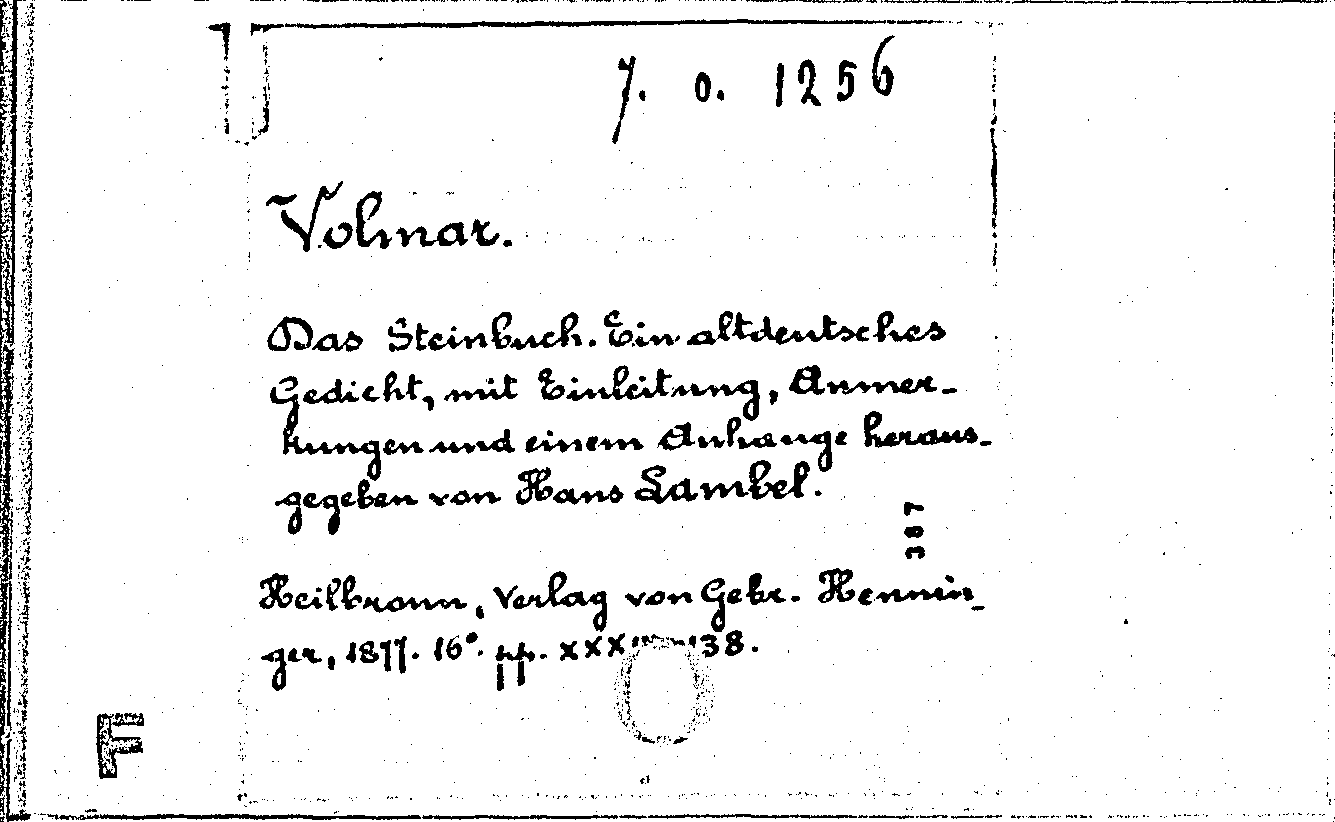 7. o. 1256
Volmar.
Das Steinbuch. Ein altdeutsches
Gedicht, mit Einleitung, Anmer-
kungen und einem Anhange heraus-
gegeben von Hans Lambel.
387
Heilbronn, Verlag von Gebr. Hennin-
ger, 1877. 16°. pp. 138.
F